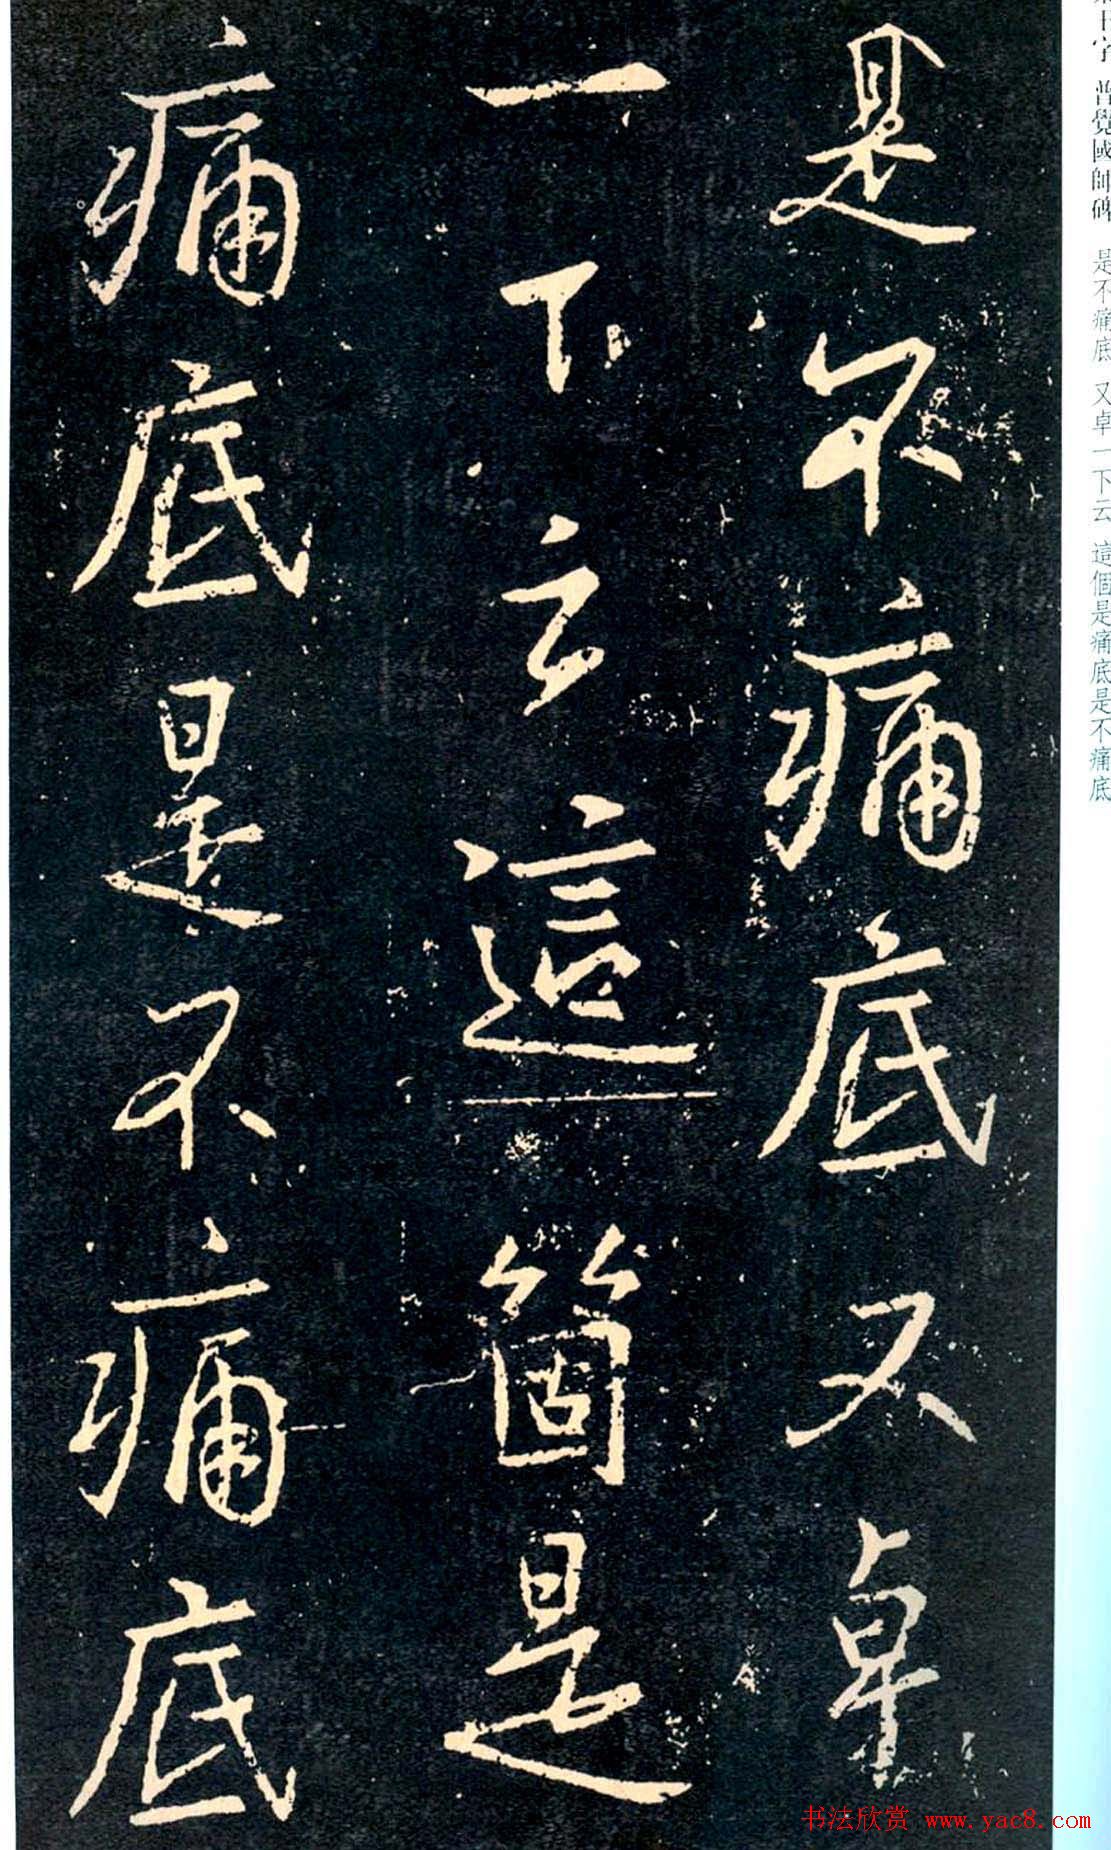 是不痛底又卓
一下云這箇是
痛底是不痛底
王字 普覺國師碑 是不痛底 又卓一下云 這個是痛底是不痛底
书法欣赏 www.yac8.com